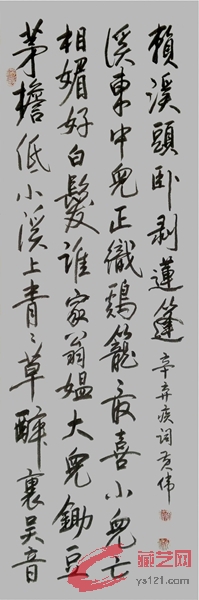 茅檐低小溪上青々草醉裏吴音
相媚好白髮誰家翁媪大兒鋤豆
溪東中兒正織鷄籠最喜小兒亡
賴溪頭卧剥蓮篷
辛弃疾词 伟
藏艺网
ys121.com